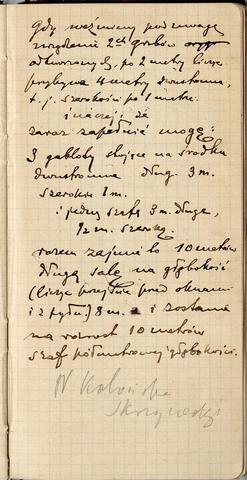 Gdy weźmiemy pod uwagę
względnie 2ch grobów oryg
odtworzonych, po 2 metry licząc
przybywa 4 metry dwustronne,
t. j. szerokości po 1 metr.
inaczej że
zaraz zapełnić mogę:
3 gabloty stojące na środku
dwustronne dług. 3 m.
szerokie 1 m.
i jedną szafę 3 m. długą,
1/2 m. szeroką.
razem zajmie to 10 metrów
długą salę na głębokość
(licząc przejście przed oknami
i z tyłu) 8 m. i zostanie
na 10 metrów
szaf półmetrowej głębokości.
W